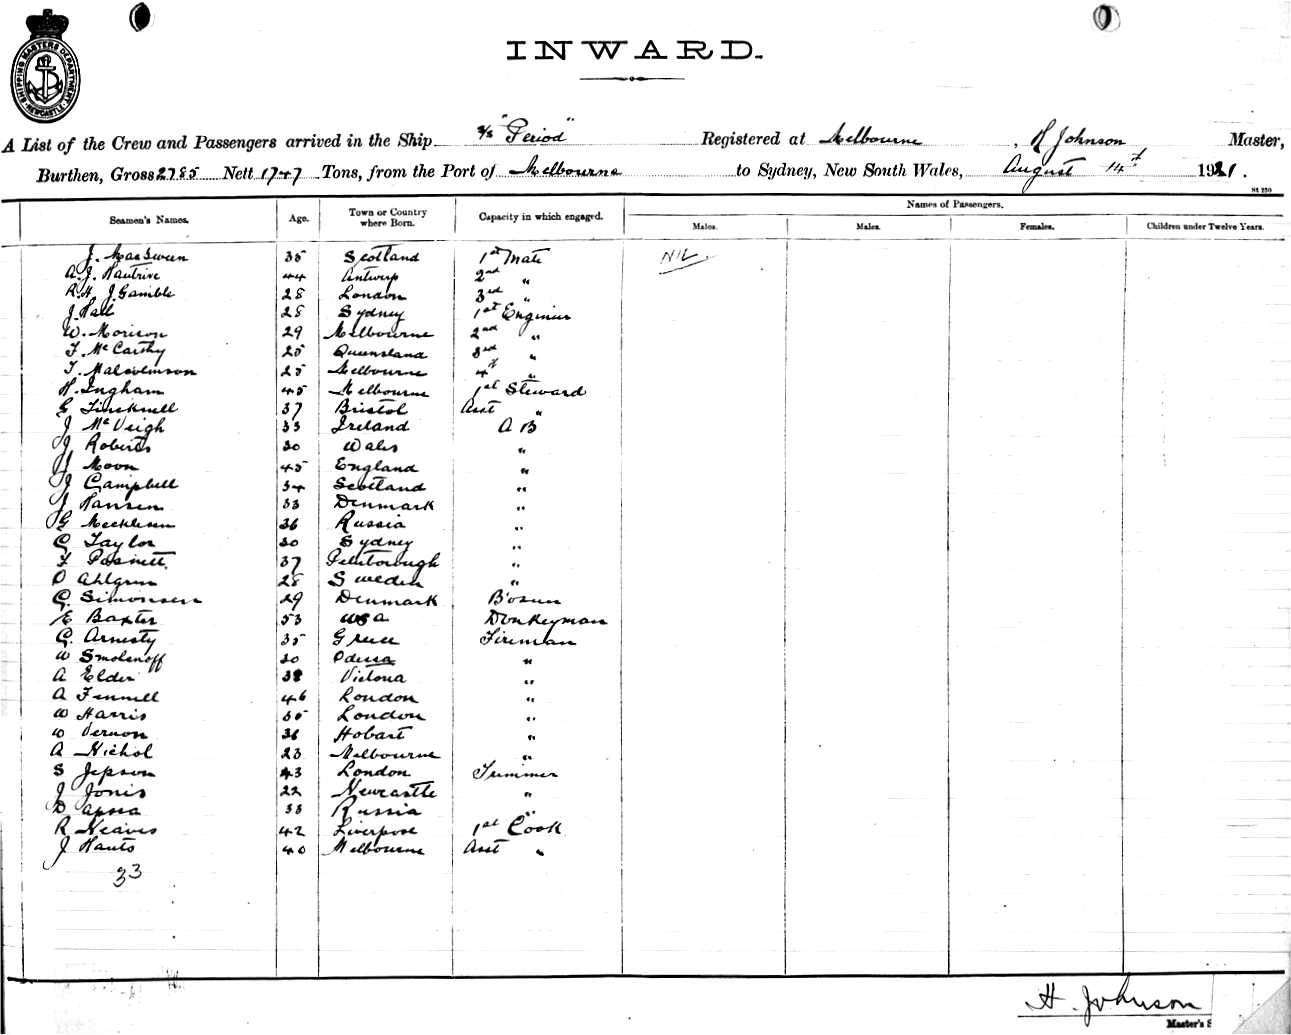 SHIPPING MASTERS DEPARTMENT. NEWCASTLE
INWARD.
A List of the Crew and Passengers arrived in the Ship S/S "Period" Registered at Melbourne, H Johnson Master,
Burthen, Gross 2785 Nett 1747 Tons, from the Port of Melbourne to Sydney, New South Wales, August 14th 1921.
Seamen's Names. Age. Town or Country where Born. Capacity in which engaged. Names of Passengers.
Males. Males. Females. Children under Twelve Years.
J. MacSween 35 Scotland 1st Mate NIL
A.J. Hautrive 44 Antwerp 2nd "
R.H. J. Gamble 28 London 3rd "
J. Hall 28 Sydney 1st Engineer
W. Morison 29 Melbourne 2nd "
F. McCarthy 25 Queensland 3rd "
T. Malcolmson 25 Melbourne 4th "
H. Ingham 45 Melbourne 1st Steward
G 37 Bristol Asst "
J McVeigh 33 Ireland A B
J Roberts 30 Wales "
J Moon 45 England "
J Campbell 34 Scotland "
J Hansen 33 Denmark "
G 36 Russia "
C Taylor 30 Sydney "
F 37 Peterborough "
O Ahlgren 28 Sweden "
C. Simonsen 29 Denmark B'osun
E Baxter 53 USA Donkeyman
G. Arnesty 35 Greece Fireman
W Smolenoff 30 Odessa "
A Elder 38 Victoria "
A Fennell 46 London "
W Harris 35 London "
W Vernon 36 Hobart "
A Nichol 23 Melbourne "
S Jepson 43 London Trimmer
J Jones 22 Newcastle "
D Apsea 33 Russia "
R Neaves 42 Liverpool 1st Cook
J Hauts 40 Melbourne Asst "
33
H. Johnson
Master's S